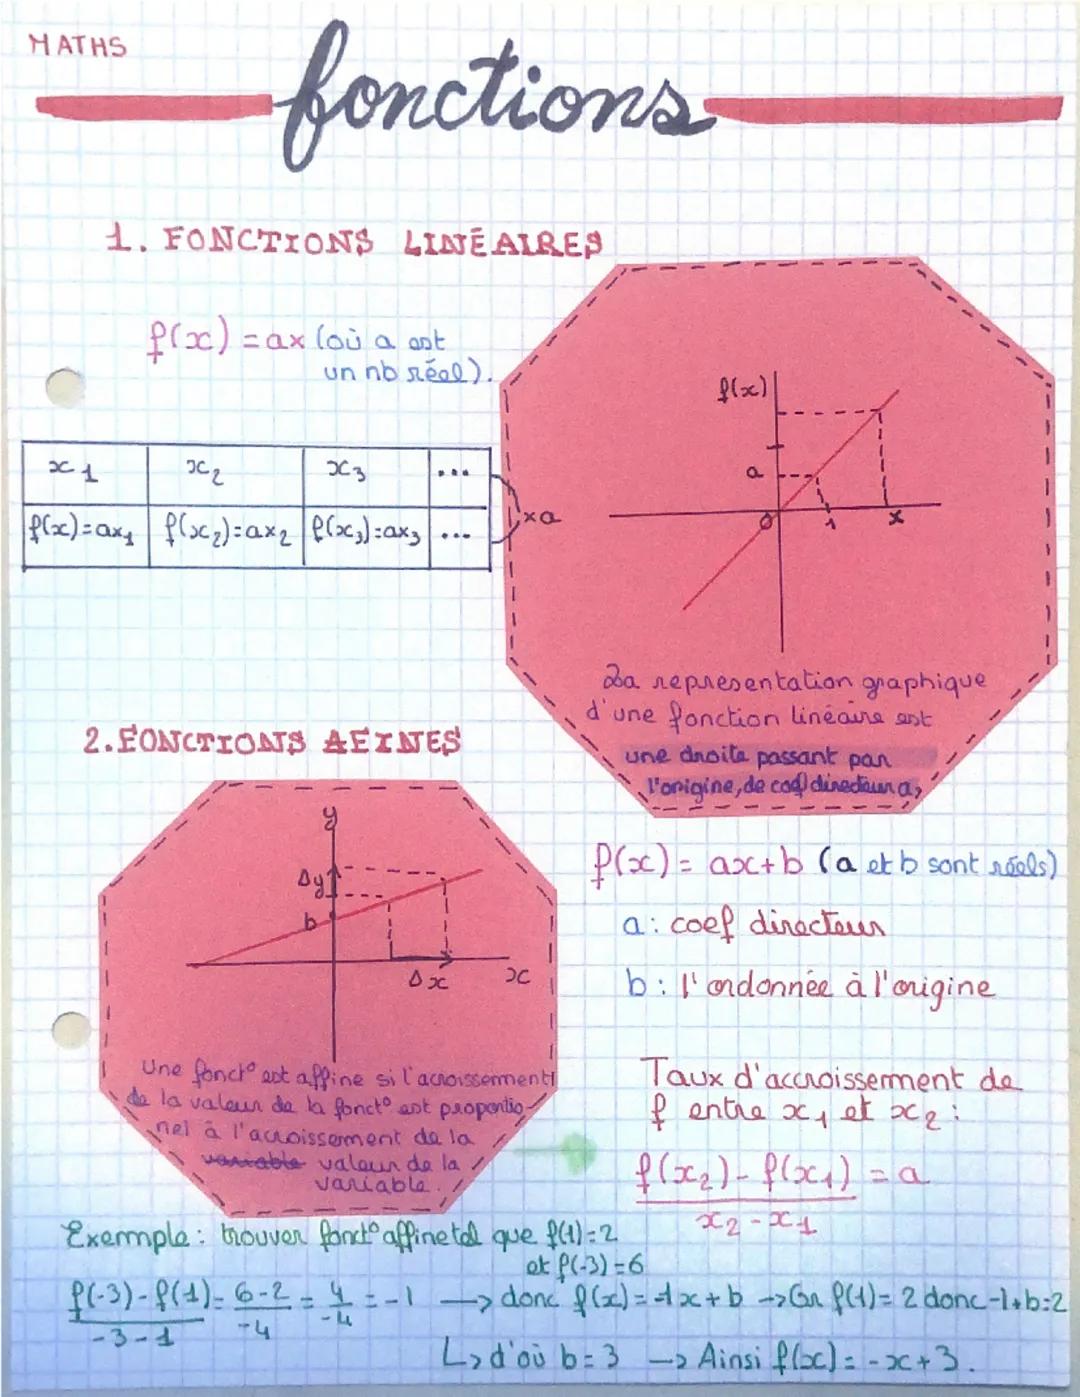 MATHS
fonctions
1. FONCTIONS LINÉAIRES
f(x) = ax (où a est
un nb réel).
x1 x2 x3 ...
f(x)=ax1 f(x2)=ax2 f(x3)=ax3 ...
xa
f(x)
a
0 1 x
La representation graphique
d'une fonction linéaire est
une droite passant par
l'origine, de coef directeur a,
2. FONCTIONS AFINES
y
Δy
b
Δx x
Une fonct° est affine si l'acroissement
de la valeur de la fonct° est proportio
nel à l'accroissement de la
variable valeur de la
variable.
f(x) = ax+b (a et b sont réels)
a: coef directeur
b: l'ordonnée à l'origine
Taux d'accroissement de
f entre x1 et x2 :
f(x2) - f(x1) = a
x2 - x1
Exemple : trouver fonct° affine tel que f(1)=2
et f(-3)=6
f(-3)-f(1) = 6-2 = 4 = -1 → donc f(x) = -1x+b → Or f(1)= 2 donc -1+b=2
-3-1 -4 -4
↳ d'où b=3 → Ainsi f(x) = -x+3.